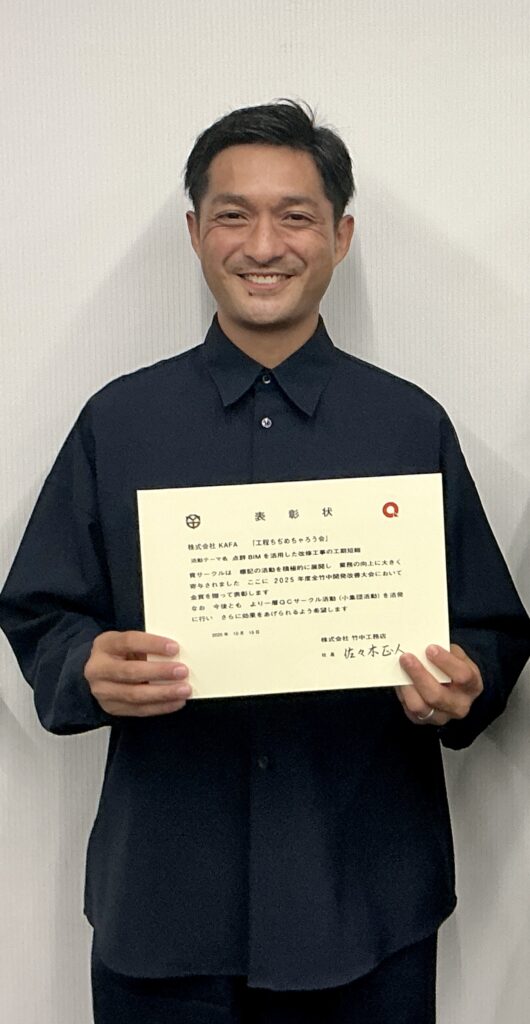 表彰状
株式会社 KAFA 「工程ちぢめちゃろう会」
活動テーマ名 点群BIMを活用した改修工事の工期短縮
貴サークルは 標記の活動を積極的に展開し 業務の向上に大きく
寄与されました ここに 2025 年度全竹中開発改善大会において
金賞を贈って表彰します
なお 今後とも より一層QCサークル活動(小集団活動)を活発
に行い さらに効果をあげられるよう希望します
2025 年 10月 10日
株式会社 竹中工務店
社長 佐々木正人